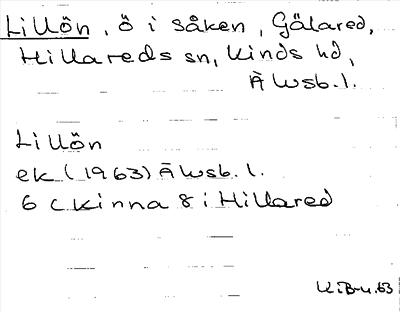 Lillön, ö i Såken, Gälared,
Hillareds sn, Kinds hd,
Älvsb. l.
Lillön
ek (1963) Älvsb. l.
6 C Kinna 8 i Hillared